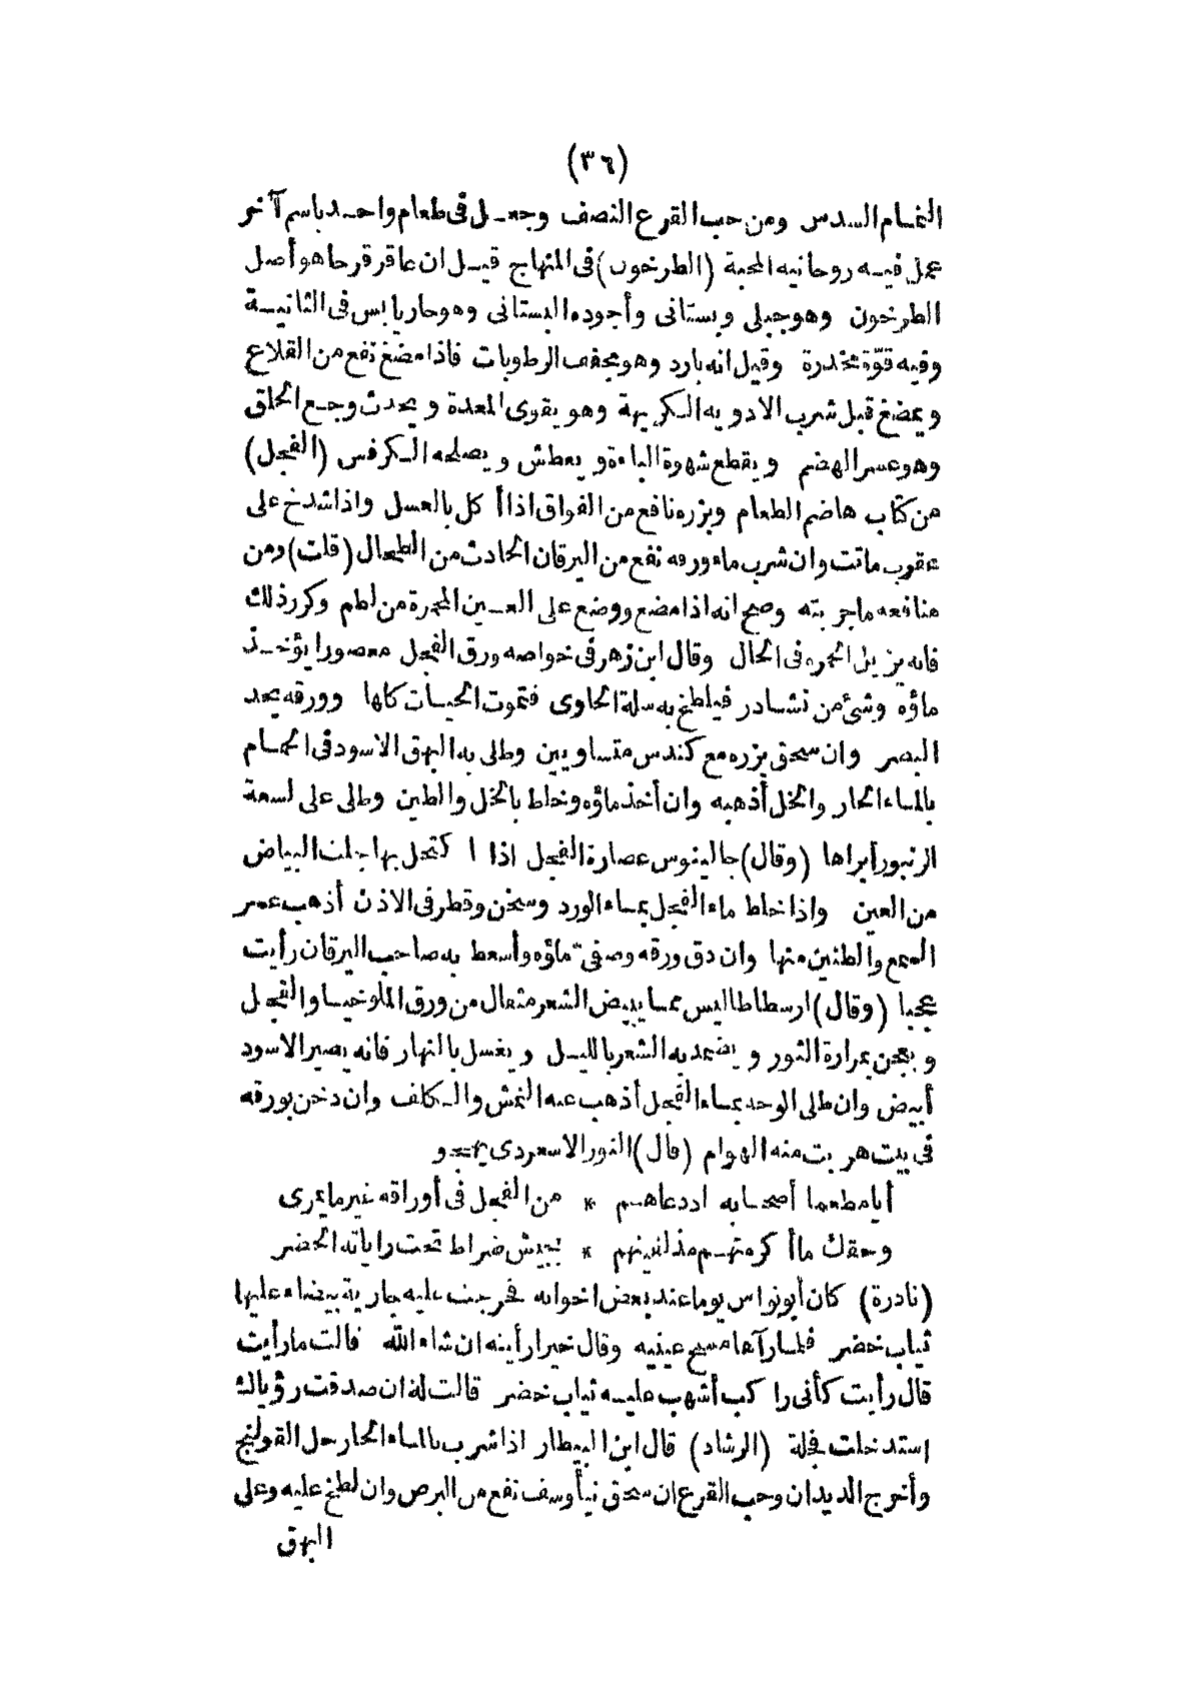 (٣٦)
النمام السدس ومن حب القرع النصف وجعل فى طعام واحد باسم آخر
عمل فيه روحانيه المحبة (الطرخون) فى المنهاج قيل ان عاقر قرحا هو أصل
الطرخون وهو جبلى وبستانى وأجوده البستانى وهو حار يابس فى الثانية
وفيه قوّة مخدرة وقيل انه بارد وهو مجفف الرطوبات فاذا مضغ نفع من القلاع
ويمضغ قبل شرب الادويه الكريهة وهو يقوى المعدة ويحدث وجع الحلق
وهو عسر الهضم ويقطع شهوة الباءة ويعطش ويصلحه الكرفس (الفجل)
من كتاب هاضم الطعام وبزره نافع من الفواق اذا أكل بالعسل واذا شدخ على
عقرب ماتت وان شرب ماء ورقه نفع من اليرقان الحادث من الطحال (قلت) ومن
منافعه ماجربته وصح انه اذا مضغ ووضع على العين المحمرة من لطم وكرر ذلك
فانه يزيل الحمره فى الحال وقال ابن زهر فى خواصه ورق الفجل معصورا يؤخذ
ماؤه وشئ من نشادر فيلطخ به سلة الحاوى فتموت الحيات كلها وورقه يحد
البصر وان سحق بزره مع كندس متساويين وطلى به البهق الاسود فى الحمام
بالماء الحار والخل أذهبه وان أخذ ماؤه وخلط بالخل والطين وطلى على لسعة
الزنبور أبراها (وقال) جالينوس عصارة الفجل اذا اكتحل بها جلت البياض
من العين واذا خلط ماء الفجل بماء الورد وسخن وقطر فى الاذن أذهب عسر
السمع والطنين منها وان دق ورقه وصفىّ ماؤه وأسعط به صاحب اليرقان رأيت
عجبا (وقال) ارسطاطاليس مما يبيض الشعر مثقال من ورق الملوخيا والفجل
ويعجن بمرارة الثور ويضمد به الشعر بالليل ويغسل بالنهار فانه يصير الاسود
أبيض وان طلى الوجه بماء الفجل أذهب عنه النمش والكلف وان دخن بورقه
فى بيت هربت منه الهوام (قال) النور الاسعردى يهجو
أيا مطعما أصحابه اذ دعاهم * من الفجل فى أوراقه غير ما يمرى
وحقك ما أكرمتهم مذ لقيتهم * بجيش ضراط تحت راياته الخضر
(نادرة) كان أبو نواس يوما عند بعض اخوانه فخرجت عليه جارية بيضاء عليها
ثياب خضر فلما رآها مسح عينيه وقال خيرا رأيته ان شاء الله فالت ما رأيت
قال رأيت كأنى راكب أشهب عليه ثياب خضر قالت له ان صدقت رؤياك
استدخلت فجلة (الرشاد) قال ابن البيطار اذا شرب بالماء الحار حل القولنج
وأخرج الديدان وحب القرع ان سحق نيأ وسف نفع من البرص وان لطخ عليه وعلى
البهق